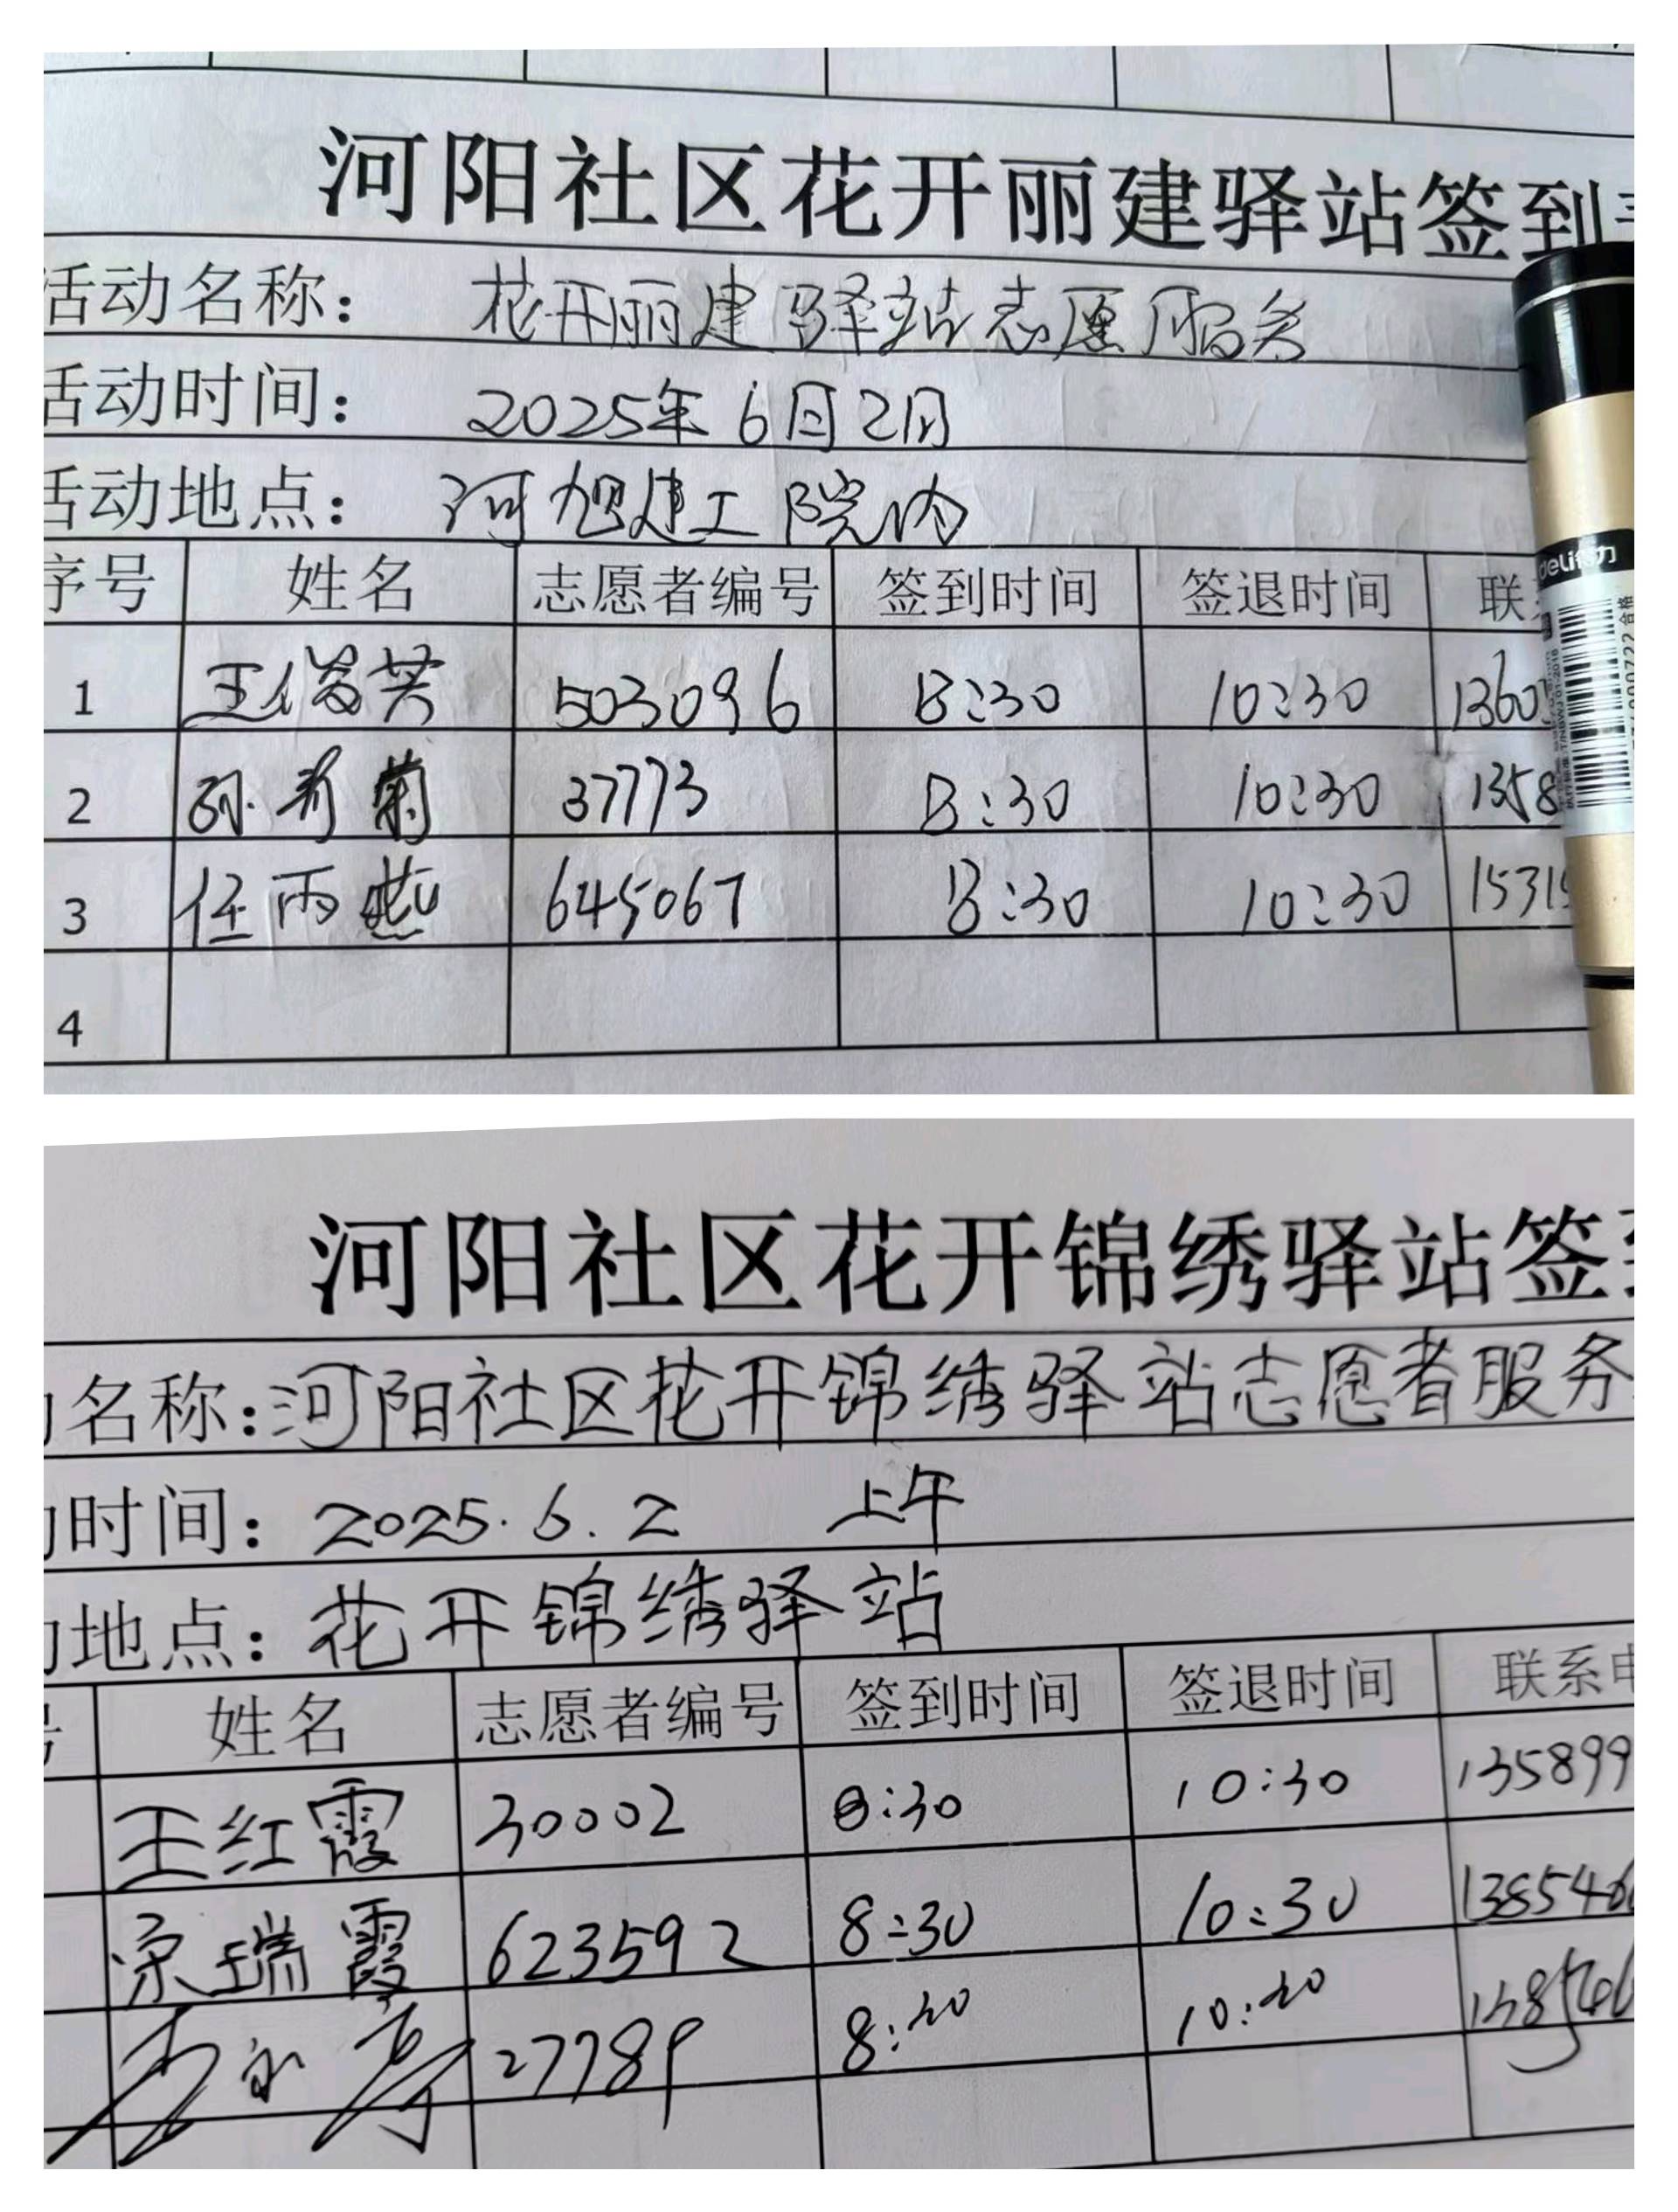 河阳社区花开丽建驿站签到
活动名称： 花开丽建驿站志愿服务
活动时间： 2025年6月2日
活动地点： 河旭建工院内
序号 姓名 志愿者编号 签到时间 签退时间 联
1 王俊芬 503096 8:30 10:30 1360
2 孙秀菊 37773 8:30 10:30 1358
3 任雨燕 645067 8:30 10:30 1531
4
deli得力
河阳社区花开锦绣驿站签
名称：河阳社区花开锦绣驿站志愿者服务
时间：2025.6.2 上午
地点：花开锦绣驿站
号 姓名 志愿者编号 签到时间 签退时间 联系
王红霞 30002 8:30 10:30 135899
瑞霞 623592 8:30 10:30 138546
27789 8:30 10:30 138546